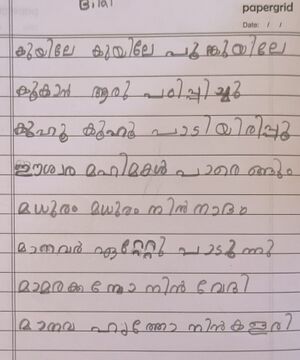 Bilal
papergrid
Date: / /
കുയിലേ കുയിലേ പൂങ്കുയിലേ
കൂകാൻ ആരു പഠിപ്പിച്ചു
കുഹൂ കുഹൂ പാടിയിരിപ്പൂ
ഈശ്വര മഹിമകൾ പാരെങ്ങും
മധുരം മധുരം നിൻ നാദം
മാനവർ ഏറ്റേറ്റു പാടുന്നു
മാമരക്കൊമ്പോ നിൻ വേദി
മാനവ ഹൃത്തോ നിൻ കളരി